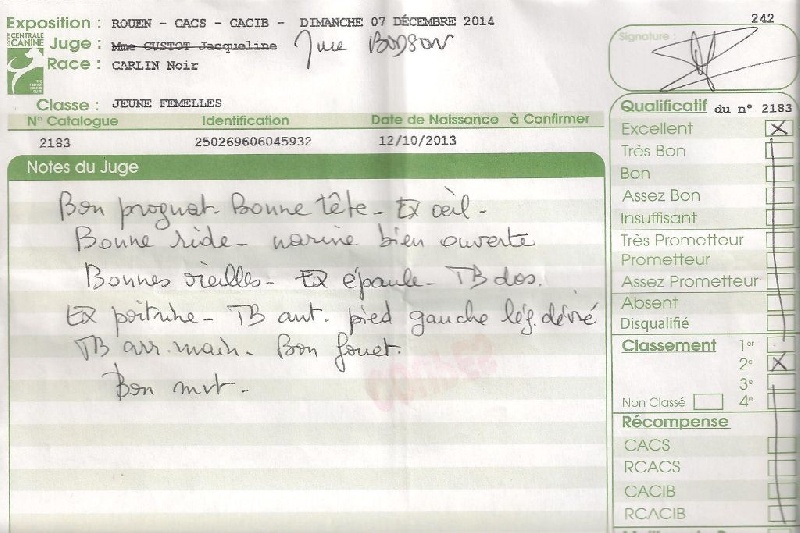 Exposition : ROUEN - CACS - CACIB - DIMANCHE 07 DÉCEMBRE 2014
242
CENTRALE CANINE
Juge : Mme GUSTOT Jacqueline Mme BODSON
Signature :
Race : CARLIN Noir
Classe : JEUNE FEMELLES
N° Catalogue Identification Date de Naissance à Confirmer
2183 250269606045932 12/10/2013
Notes du Juge
Bon prognat - Bonne tête - Ex œil -
Bonne ride - narine bien ouverte
Bonnes oreilles - Ex épaule - TB dos.
Ex poitrine - TB ant. pied gauche lég. dévié
TB arr. main. Bon fouet.
Bon mvt -
Qualificatif du n° 2183
Excellent X
Très Bon
Bon
Assez Bon
Insuffisant
Très Prometteur
Prometteur
Assez Prometteur
Absent
Disqualifié
Classement 1er
2e X
3e
Non Classé 4e
Récompense
CACS
RCACS
CACIB
RCACIB